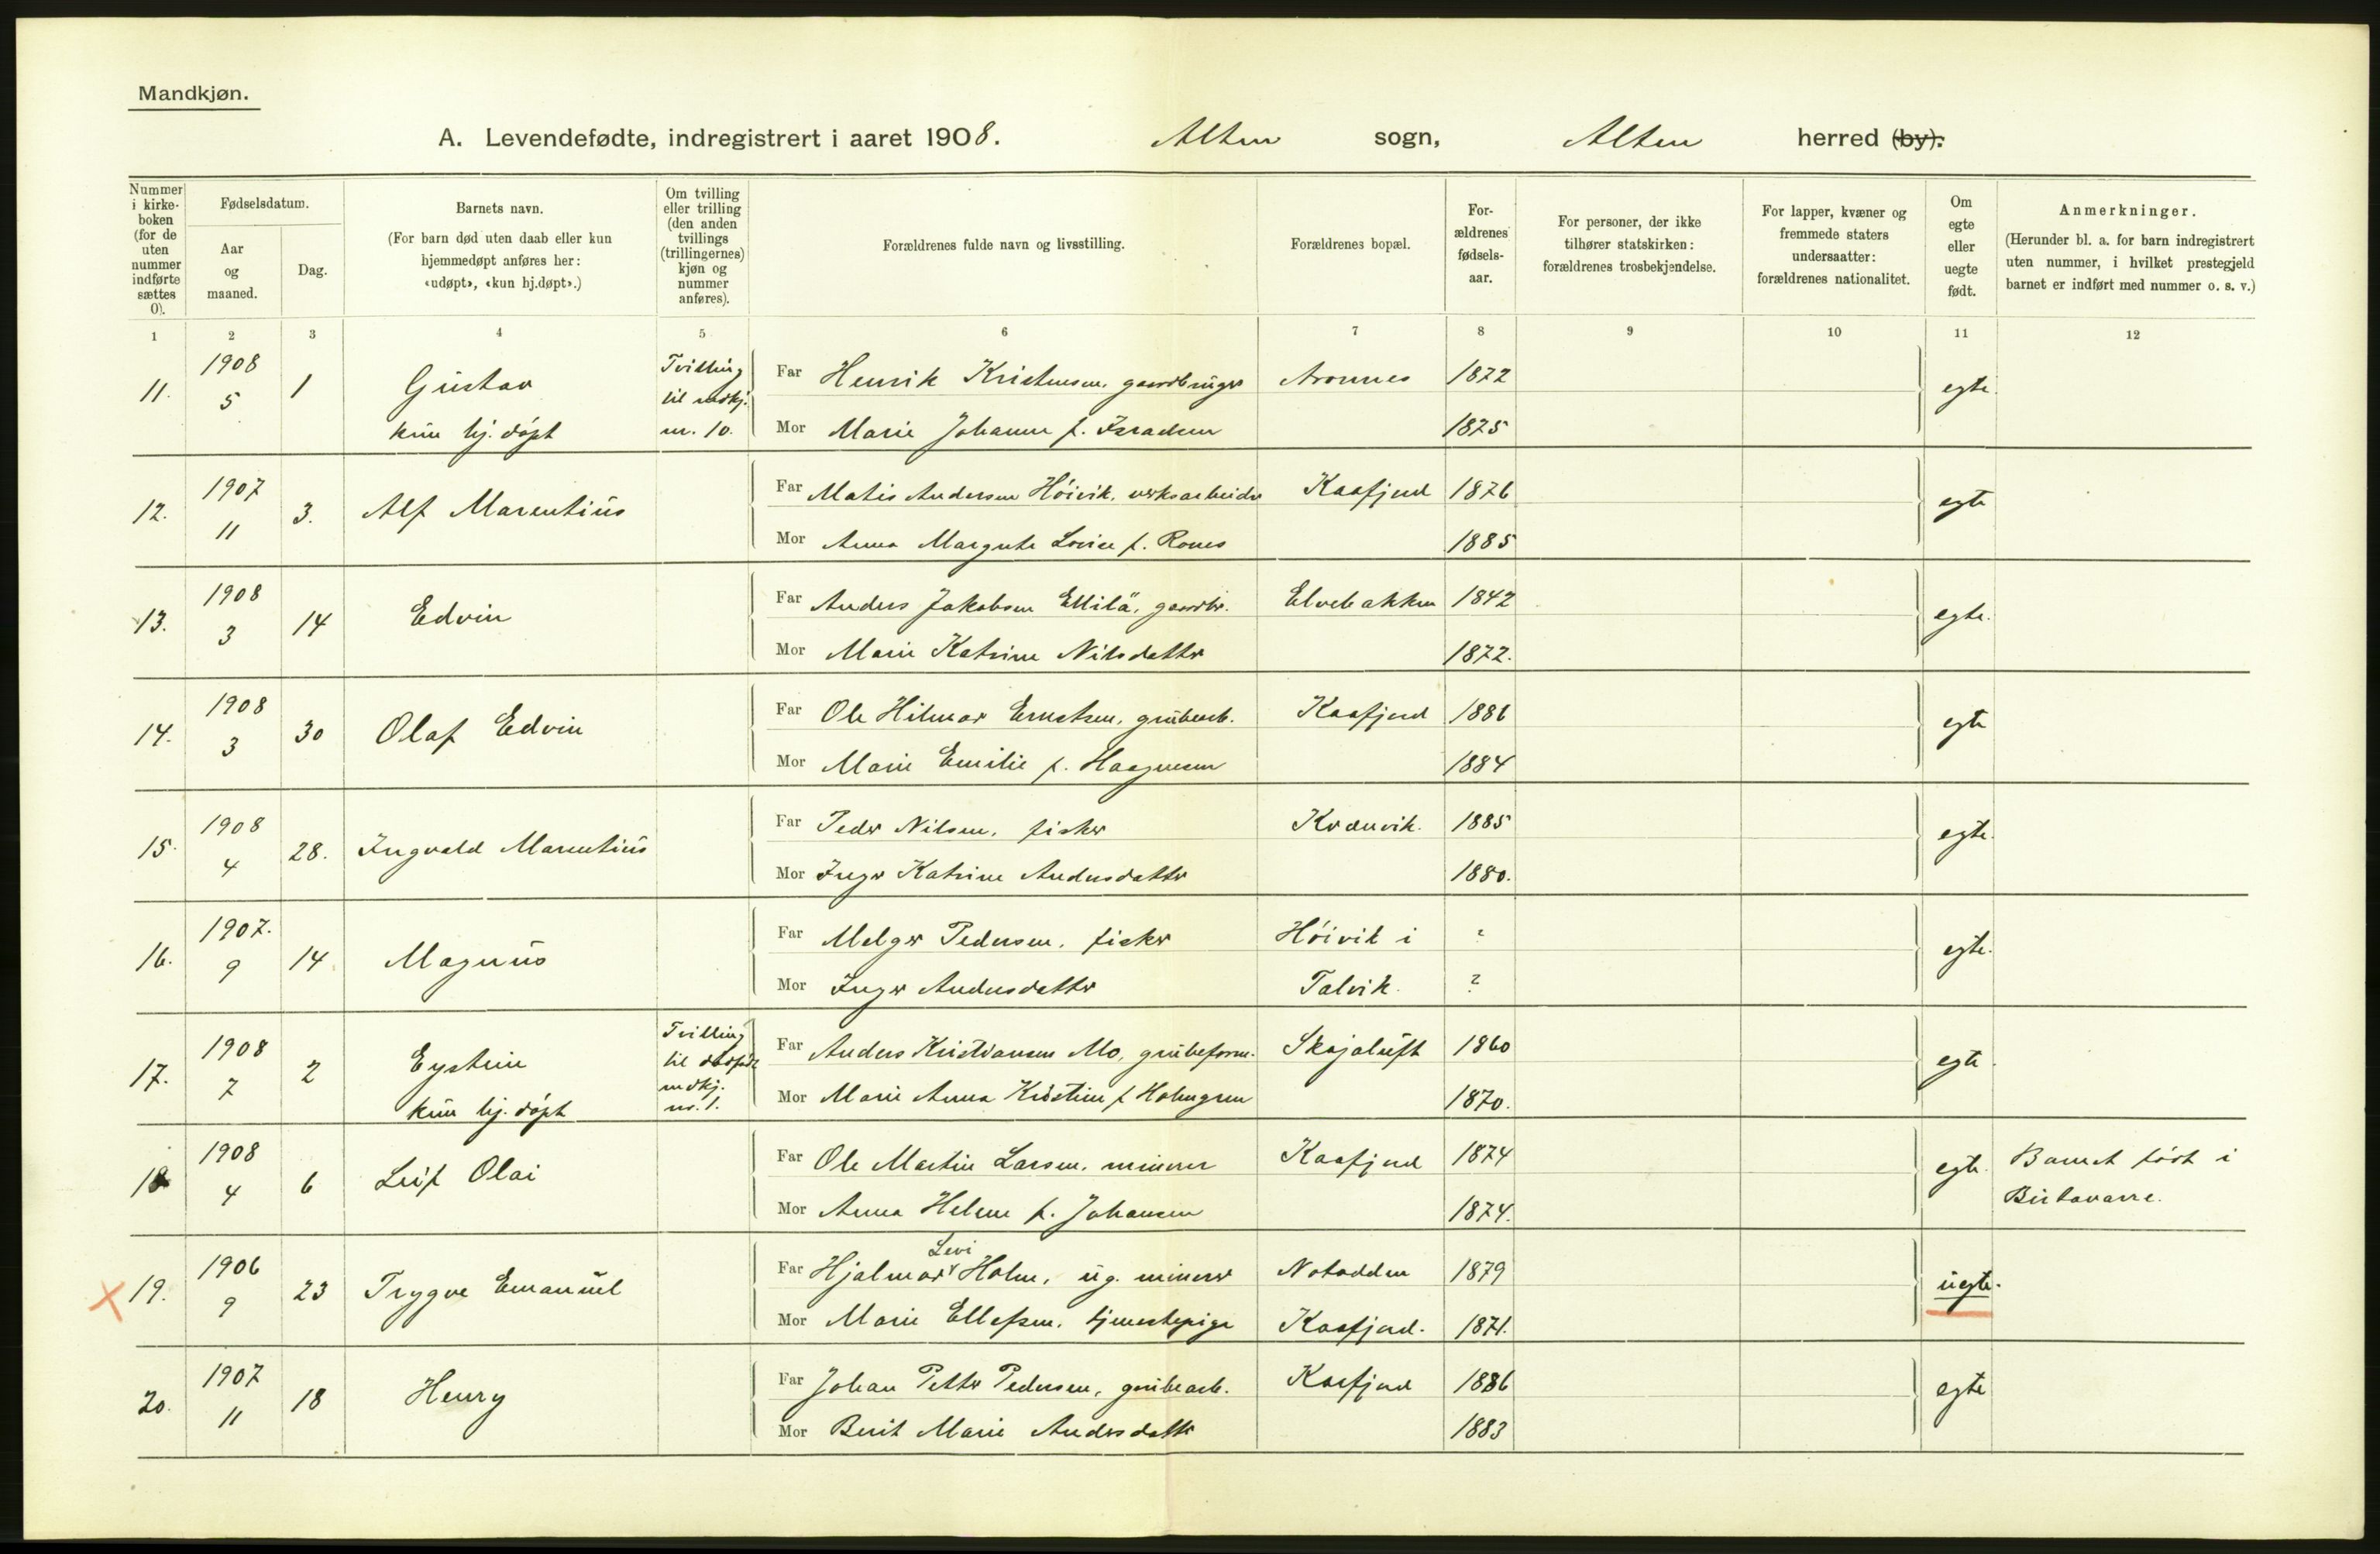 Mandkjøn.
A. Levendefødte, indregistrert i aaret 1908. Alten sogn, Alten herred (by).
Nummer i kirke- boken (for de uten nummer indførte sættes 0).
Fødselsdatum.
Aar og maaned.
Dag.
Barnets navn.
(For barn død uten daab eller kun hjemmedøpt anføres her: «udøpt», «kun hj.døpt».)
Om tvilling eller trilling (den anden tvillings (trillingernes) kjøn og nummer anføres).
Forældrenes fulde navn og livsstilling.
Forældrenes bopæl.
For- ældrenes fødsels- aar.
For personer, der ikke tilhører statskirken: forældrenes trosbekjendelse.
For lapper, kvæner og fremmede staters undersaatter: forældrenes nationalitet.
Om egte eller uegte født.
Anmerkninger.
(Herunder bl. a. for barn indregistrert uten nummer, i hvilket prestegjeld barnet er indført med nummer o. s. v.)
1 2 3 4 5 6 7 8 9 10 11 12
11. 1908 5 1 Gustav kun hj. døpt Tvilling til mdkj. nr. 10. Far Henrik Kristensen, gaardbruger Aronnes 1872 egte.
Mor Marie Johanne f. Israelsen 1875
12. 1907 11 3. Alf Marentius Far Matis Andersen Høivik, verksarbeider Kaafjord 1876 egte
Mor Anna Margrete Lovise f. Rones 1885
13. 1908 3 14 Edvin Far Anders Jakobsen Ellilä, gaardbr. Elvebakken 1842 egte.
Mor Marie Katrine Nilsdatter 1872.
14. 1908 3 30 Olaf Edvin Far Ole Hilmar Ernstsen, grubearb. Kaafjord 1886 egte
Mor Marie Emilie f. Haagensen 1884
15. 1908 4 28. Ingvald Marentius Far Peder Nilsen, fisker Kvænvik. 1885 egte.
Mor Inger Katrine Andersdatter 1880.
16. 1907. 9 14 Magnus Far Melger Pedersen, fisker Høivik i ? egte.
Mor Inger Andersdatter Talvik. ?
17. 1908 7 2 Eystein kun hj. døpt Tvilling til dødfødt mdkj. nr. 1. Far Anders Kristiansen Mo, grubeform. Skajaluft 1860 egte.
Mor Marie Anna Kristine f Holmgren 1870.
18 1908 4 6 Leif Olai Far Ole Martin Larsen, minerer Kaafjord 1874 egte. Barnet født i Birtavarre.
Mor Anna Helene f. Johansen 1874.
19. 1906 9 23 Trygve Emanuel Far Hjalmar Levi Holm, ug. minerer Notodden 1879 uegte.
Mor Marie Ellefsen, tjenestepige Kaafjord. 1871.
20. 1907 11 18 Henry Far Johan Petter Pedersen, grubearb. Kaafjord 1886 egte
Mor Berit Marie Andersdatter 1883